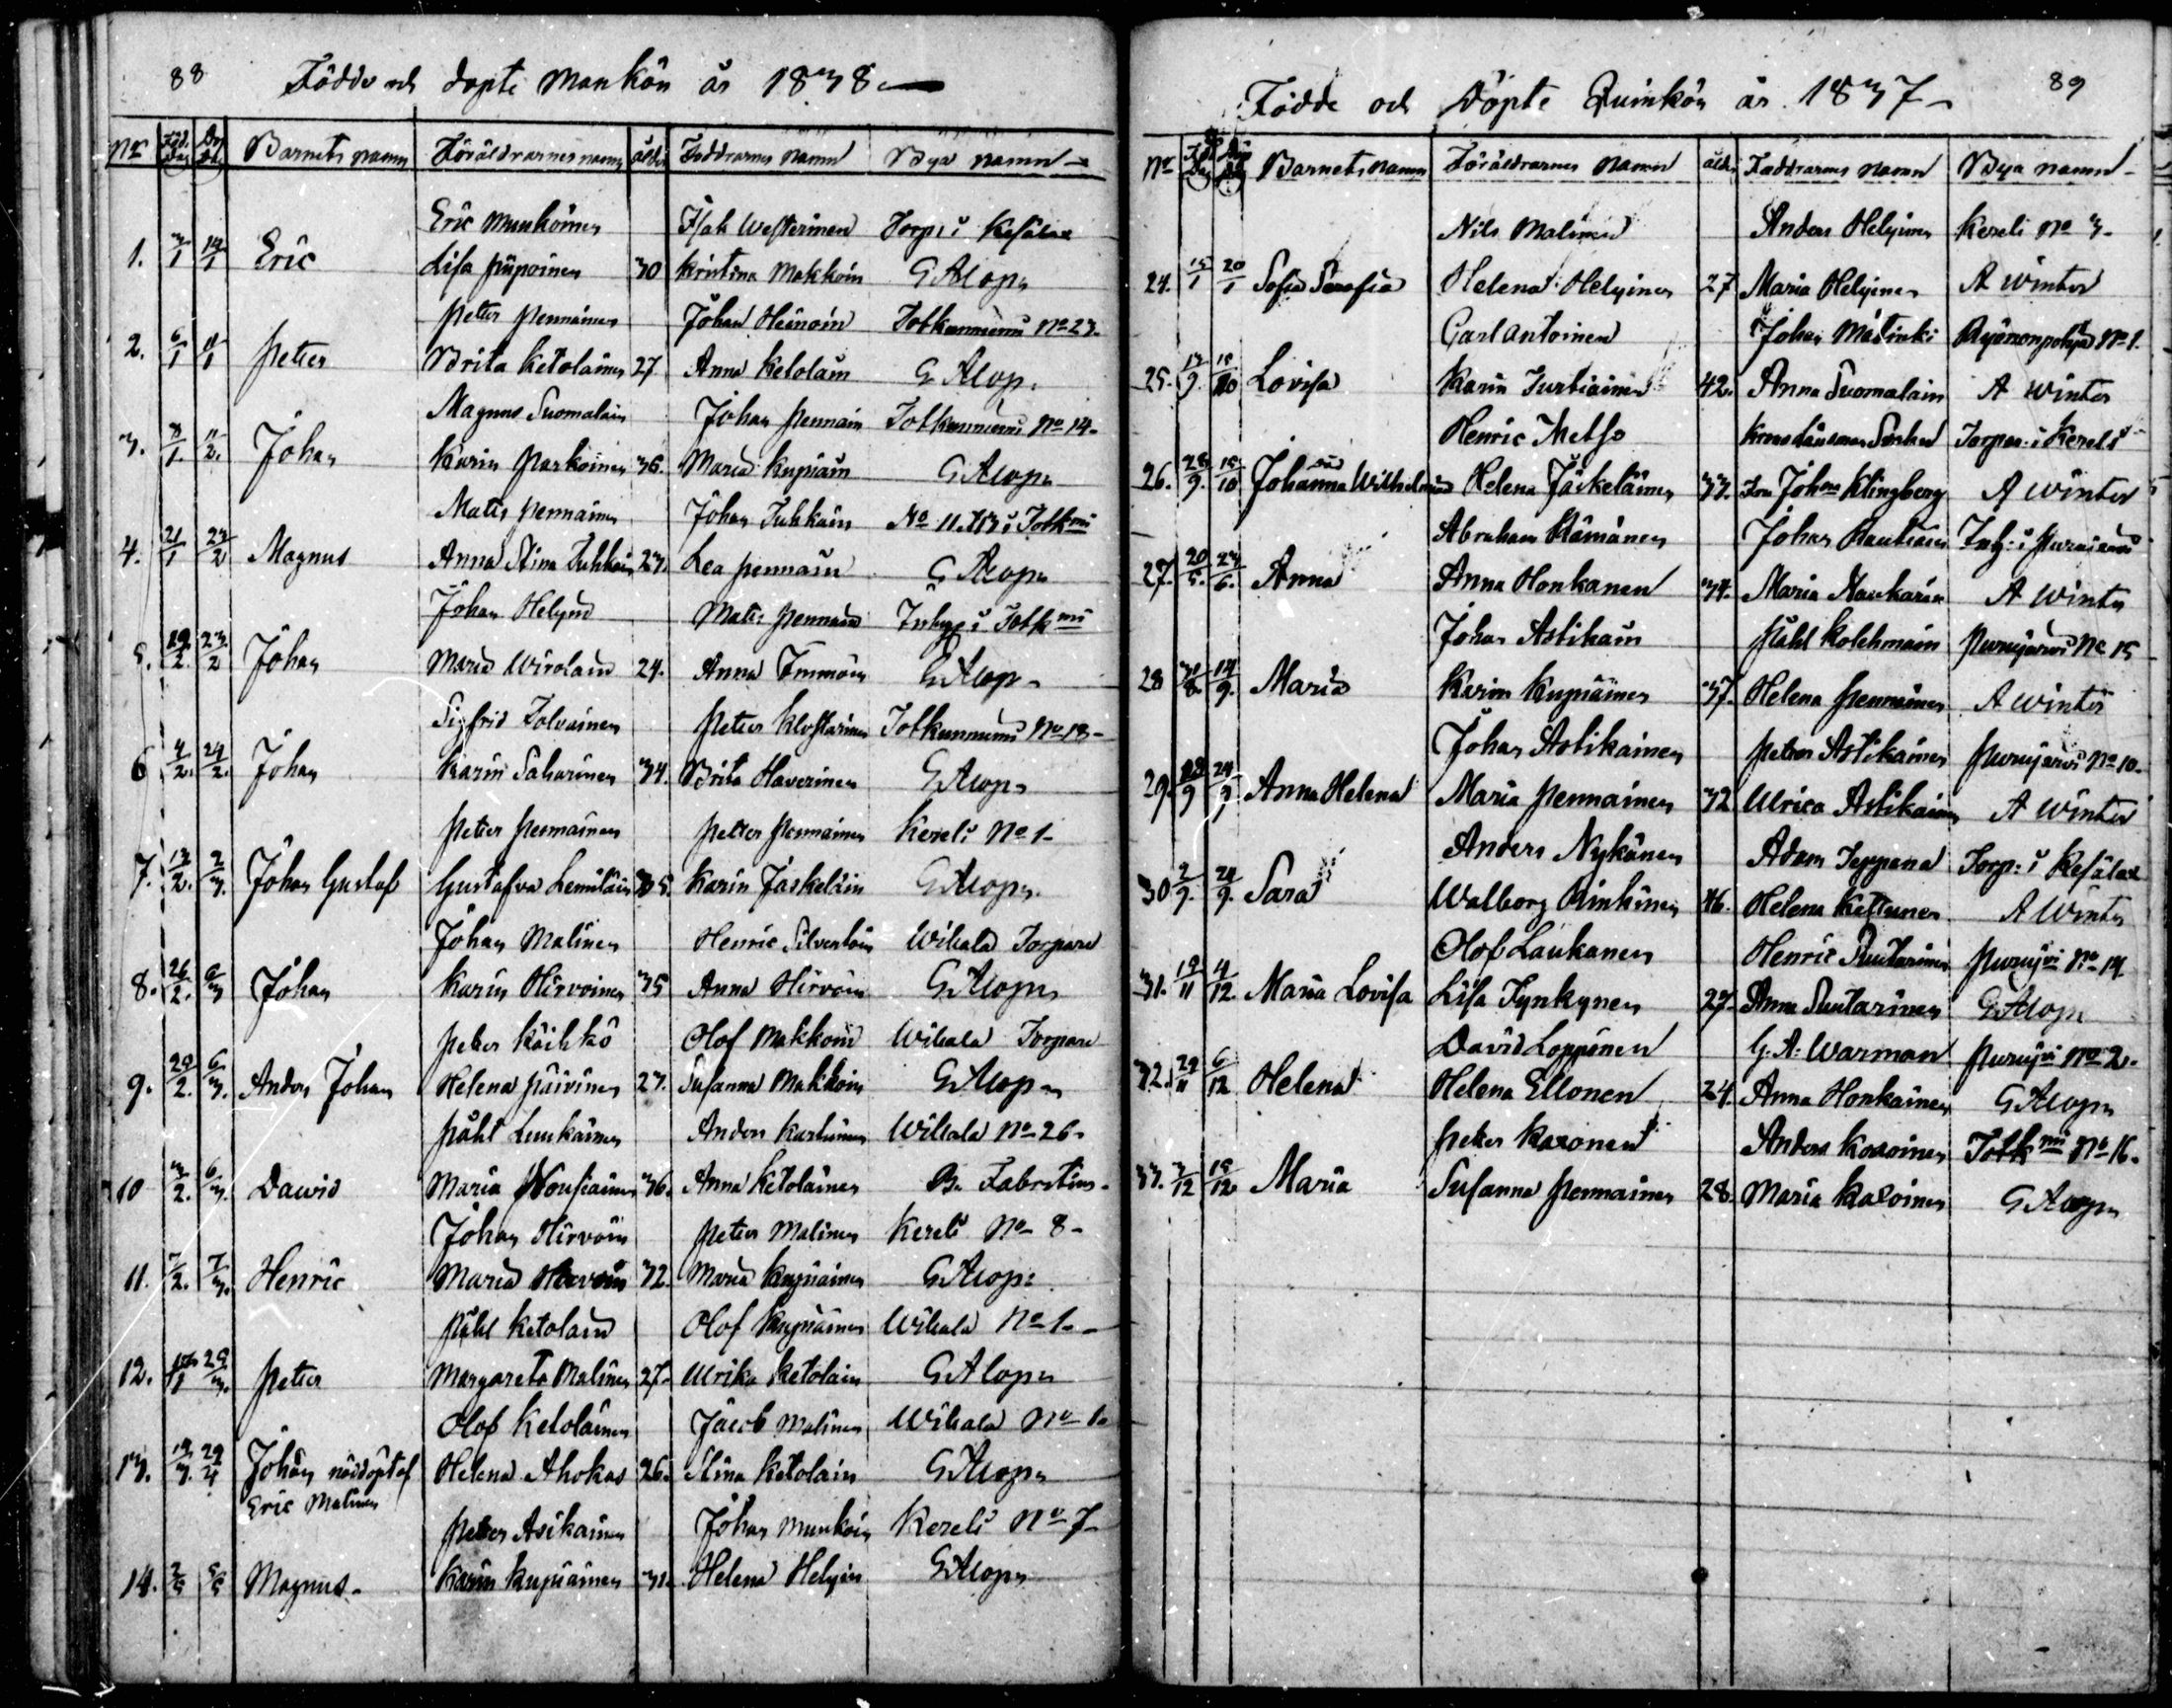 88 Födde och döpte Mankön år 1838
No Föd. Dag Barnets namn Föräldrarnes namn ålder Faddrarnes Namn Bya namn
Eric Munkoinen Isak Westerinen Torp: i Kesälax
1. 3/1 14/1 Eric Lisa Piipoinen 30 Kristina Makkoin G Alop:
Petter Pennainen Johan Heinoin Totkunniemi No 23.
2. 6/1 Petter Brita Ketolainen 27 Anna Ketolain G Alop.
Magnus Suomalain Johan Pennain Totkunniemi No 14
3. 11/2. Johan Karin Parkoinen 36. Maria Kupiain G Alop:
Matts Pennainen Johan Tuhkain No 11 Totkmi
4. 21/1 23/2 Magnus Anna Stina Tuhkain 23. Lea Pennain G Alop:
Johan Helynd Matts Pennain Inhys i Totkmi
5. 19/2. 23/2 Johan Maria Wirolain 24. Anna Immoin G Alop
Sigfrid Tolvainen Petter Klostarinen Totkunniemi No 13
6 4/2. 24/2. Johan Karin Saharinen 34. Brita Haverinen G Alop
Petter Pennainen Petter Pennainen Kereli No 1
7. 13/2. 2/3. Johan Gustaf Gustafva Lemiläin 35 Karin Jäskeläin G Alop:
Johan Malinen Henric Silvertoin Wihala Torpare
8. 26/2. 6/3 Johan Karin Hirvoinen 35 Anna Hirvoin G Alop:
Peter Käihkö Olof Makkoin Wihala Torpare
9. 20/2. 6/3. Anders Johan Helena Päivinen 23. Susanna Makkoin G Alop
Påhl Luukainen Anders Karhunen Wihala No 26
10 3/2. 6/3. David Maria Nousiainen 36. Anna Ketolainen B. Fabritius
Johan Hirvoin Petter Malinen Kereli No 8
11. 7/2. 7/3. Henric Maria Hirvoin 32. Maria Kupiainen G Alop:
Påhl Ketolain Olof Kupiainen Wihala No 1
12. 29/3. Petter Margareta Malinen 27 Ulrika Ketolain G Alop:
Olof Ketolainen Jacob Malinen Wihala No 1
13. 19/3. 29/4 Johan nöddöpt af Helena Ahokas 26. Stina Ketolain G Alop:
Eric Malinen
Petter Asikainen Johan Munkoin Kereli No 7
14. 2/5 5/5 Magnus Karin Kupiainen 31. Helena Helyin G Alop:
Födde och Döpte Quinkön år 1837 89
No Föd Dag Barnets namn Föräldrarnes Namn ålder Faddrarnes Namn Bya namn
Nils Malinen Anders Helyinen Kereli No 3
24. 15/1 20/1 Sofia Serafia Helena Helyinen 27 Maria Helyinen A Winter
Carl Antoinen Johan Matinki No 1.
25. 13/9. 15/10 Lovisa Karin Turtiainen 42. Anna Suomalain A Winter
Henric Metso Torpare i Kereli
26. 28/9. 15/10 Johanna Wilhelmina Helena Jäskeläinen 33. Johna Klingberg A Winter
Abraham Hämänen Johan Rautiain Inhys i Purujärvi
27. 20/5. 23/6. Anna Anna Honkanen 34. Maria Naukarin A Winter
Johan Astikain Påhl Kolehmain Purujärvi No 15
28 31/8. 14/9. Maria Karin Kupiainen 37. Helena Pennainen A Winter
Johan Astikainen Petter Astikainen Purujärvi No 10
29. 24/9 Anna Helena Maria Pennainen 32 Ulrica Astikain A Winter
Anders Nykänen Adam Ieppana Torp: i Kesälax
30 2/9. 24/9. Sara Walborg Rinkinen 46. Helena Kettunen A Winter
Olof Laukanen Henric Suutarinen Purujvi No 14
31. 19/11 4/12. Maria Lovisa Lisa Tynkynen 27. Anna Suutarinen G Alop:
David Loppönen G. A. Warman Purujvi No 2.
32. 29/11 6/12 Helena Helena Ellonen 24. Anna Honkainen G Alop:
Peter Kasonen Anders Kosoinen Totkmi No 16.
33. 3/12 15/12 Maria Susanna Pennainen 28. Maria Kasoinen G Alop: